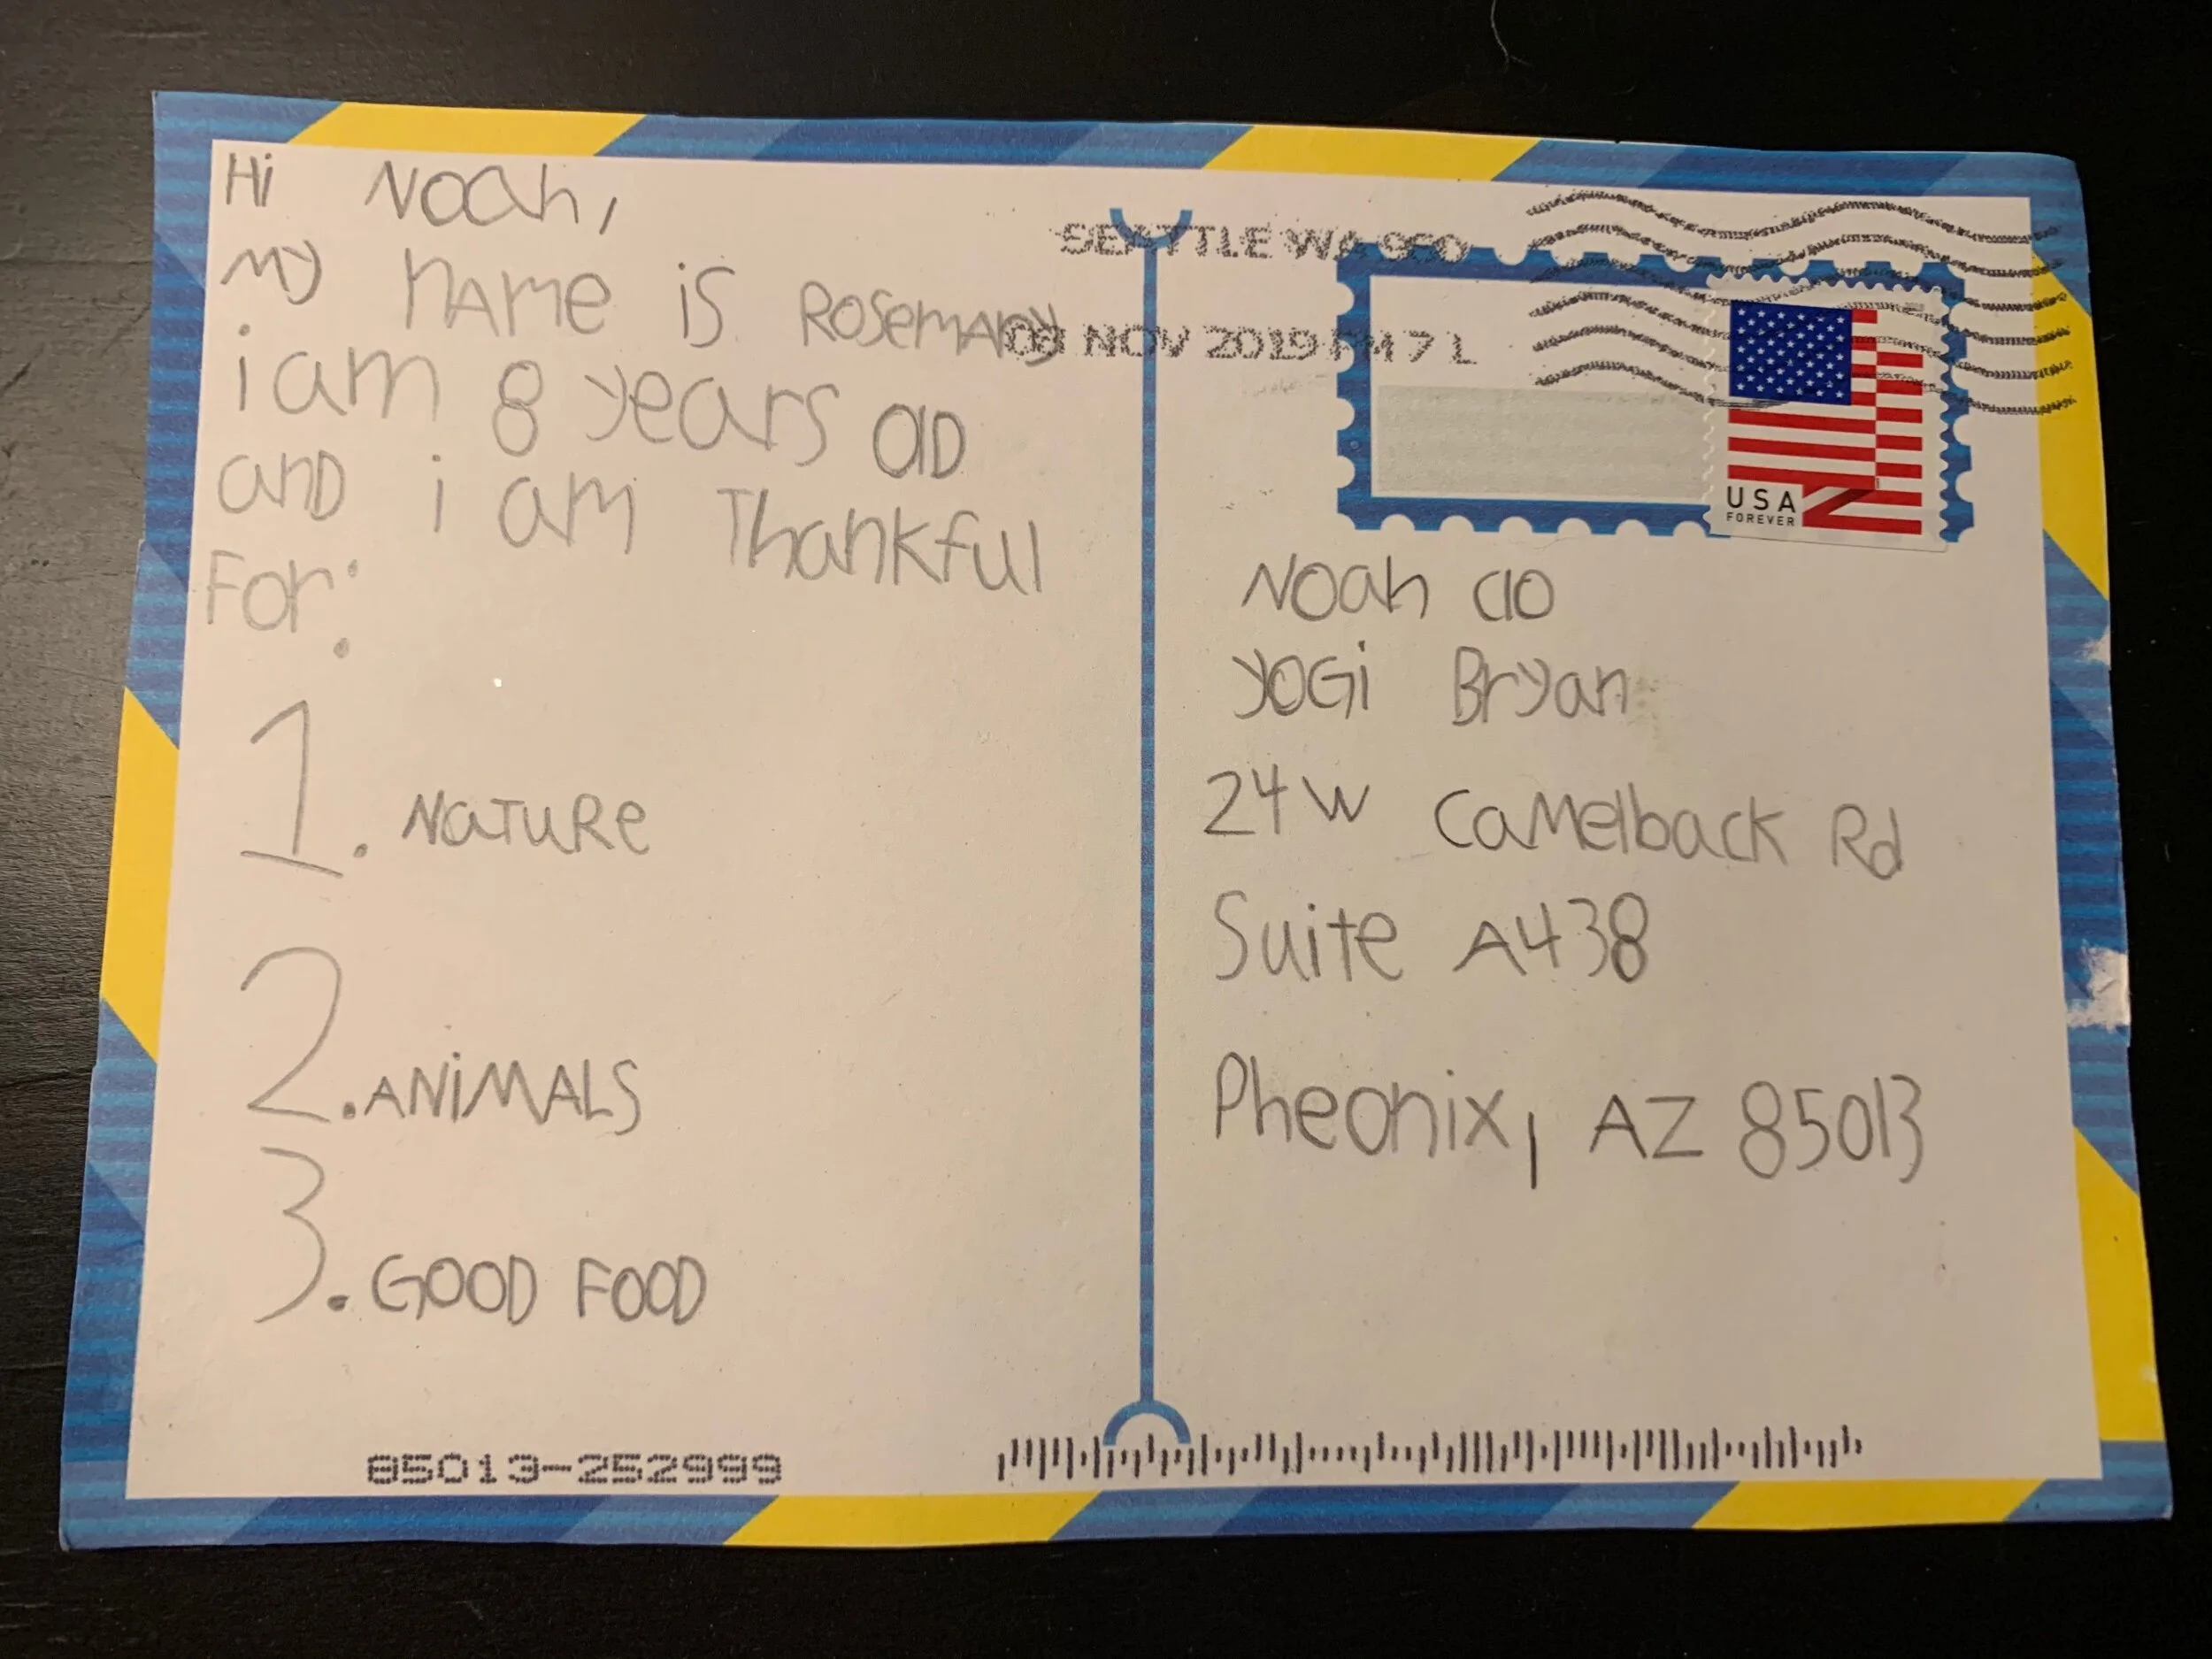 Hi Noah,
my name is Rosemary
i am 8 years old
and i am Thankful
For:
1. Nature
2. ANiMALS
3. GOOD FOOD
85013-252999
SEATTLE WA 980
08 NOV 2019 PM 7 L
USA
FOREVER
Noah c/o
YOGi Bryan
24 W Camelback Rd
Suite A438
Pheonix, AZ 85013